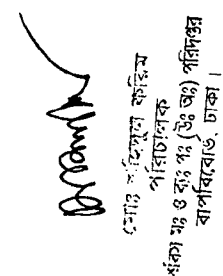 মোঃ শহিদুল করিম
পরিচালক
ঢাকা মঃ ও রাঃ পঃ (উঃ অঃ) পরিদপ্তর
বাপবিবোর্ড, ঢাকা।